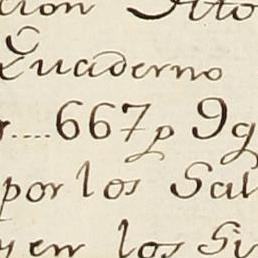 cion Otto
Quaderno
r....667p 9q
por los Sal
y en los Si